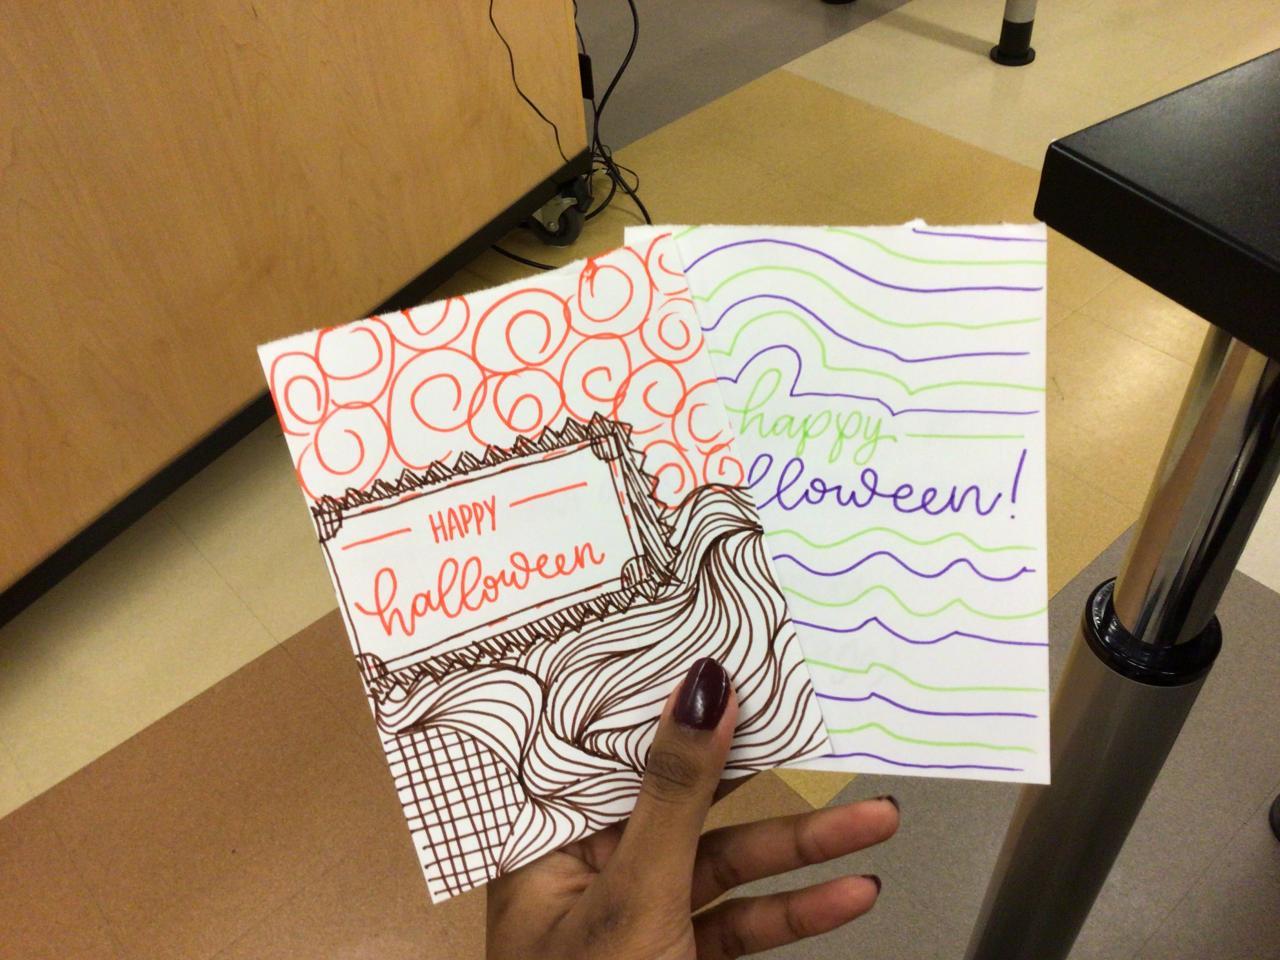 HAPPY
halloween
happy
lloween!